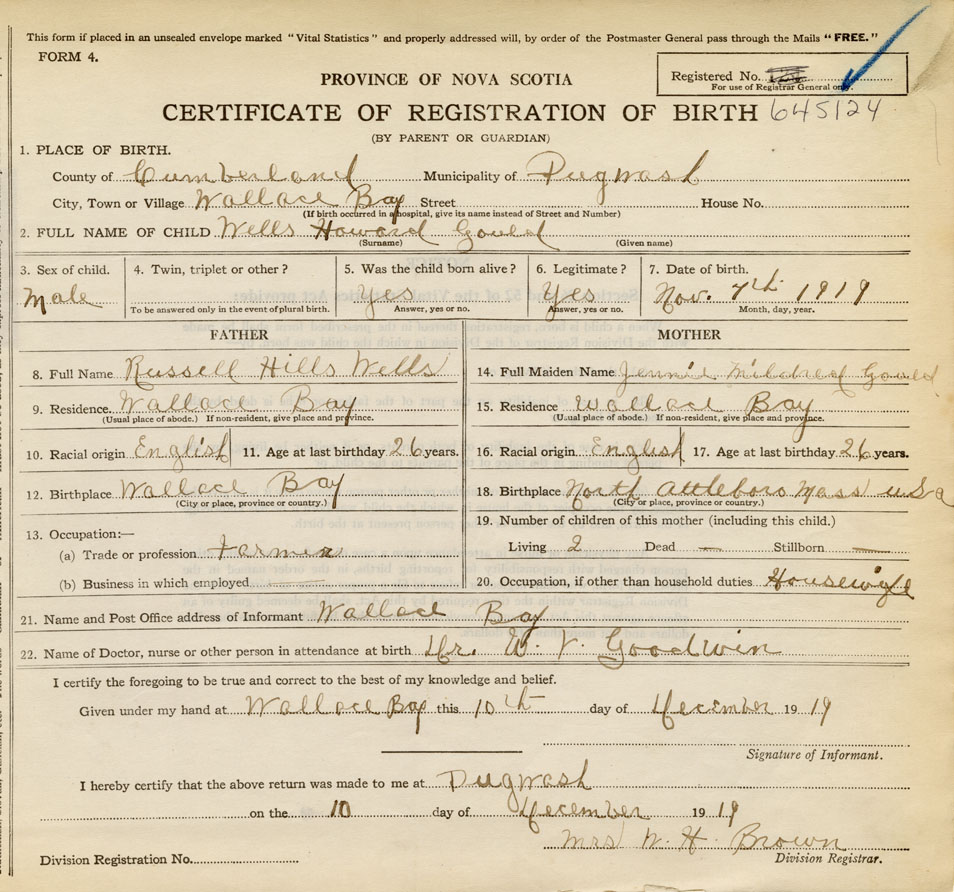 This form if placed in an unsealed envelope marked "Vital Statistics" and properly addressed will, by order of the Postmaster General pass through the Mails "FREE."
FORM 4.
PROVINCE OF NOVA SCOTIA
Registered No.
For use of Registrar General only.
CERTIFICATE OF REGISTRATION OF BIRTH 645124
(BY PARENT OR GUARDIAN)
1. PLACE OF BIRTH.
County of Cumberland Municipality of Pugwash
City, Town or Village Wallace Bay Street House No.
(If birth occurred in a hospital, give its name instead of Street and Number)
2. FULL NAME OF CHILD Wells Howard Gould
(Surname) (Given name)
3. Sex of child. 4. Twin, triplet or other? 5. Was the child born alive? 6. Legitimate? 7. Date of birth.
Male Yes Yes Nov. 7th 1919
To be answered only in the event of plural birth. Answer, yes or no. Answer, yes or no. Month, day, year.
FATHER MOTHER
8. Full Name Russell Hills Wells 14. Full Maiden Name Jennie Mildred Gould
9. Residence. Wallace Bay 15. Residence Wallace Bay
(Usual place of abode.) If non-resident, give place and province. (Usual place of abode.) If non-resident, give place and province.
10. Racial origin English 11. Age at last birthday 26 years. 16. Racial origin English 17. Age at last birthday 26 years.
12. Birthplace Wallace Bay 18. Birthplace North Attleboro Mass U S A
(City or place, province or country.) (City or place, province or country.)
13. Occupation:— 19. Number of children of this mother (including this child.)
(a) Trade or profession Farmer Living 2 Dead — Stillborn —
(b) Business in which employed — 20. Occupation, if other than household duties. Housewife
21. Name and Post Office address of Informant Wallace Bay
22. Name of Doctor, nurse or other person in attendance at birth Dr. W. V. Goodwin
I certify the foregoing to be true and correct to the best of my knowledge and belief.
Given under my hand at Wallace Bay this 10th day of December 1919
Signature of Informant.
I hereby certify that the above return was made to me at Pugwash
on the 10 day of December 1919
Mrs W. H. Brown
Division Registration No. Division Registrar.